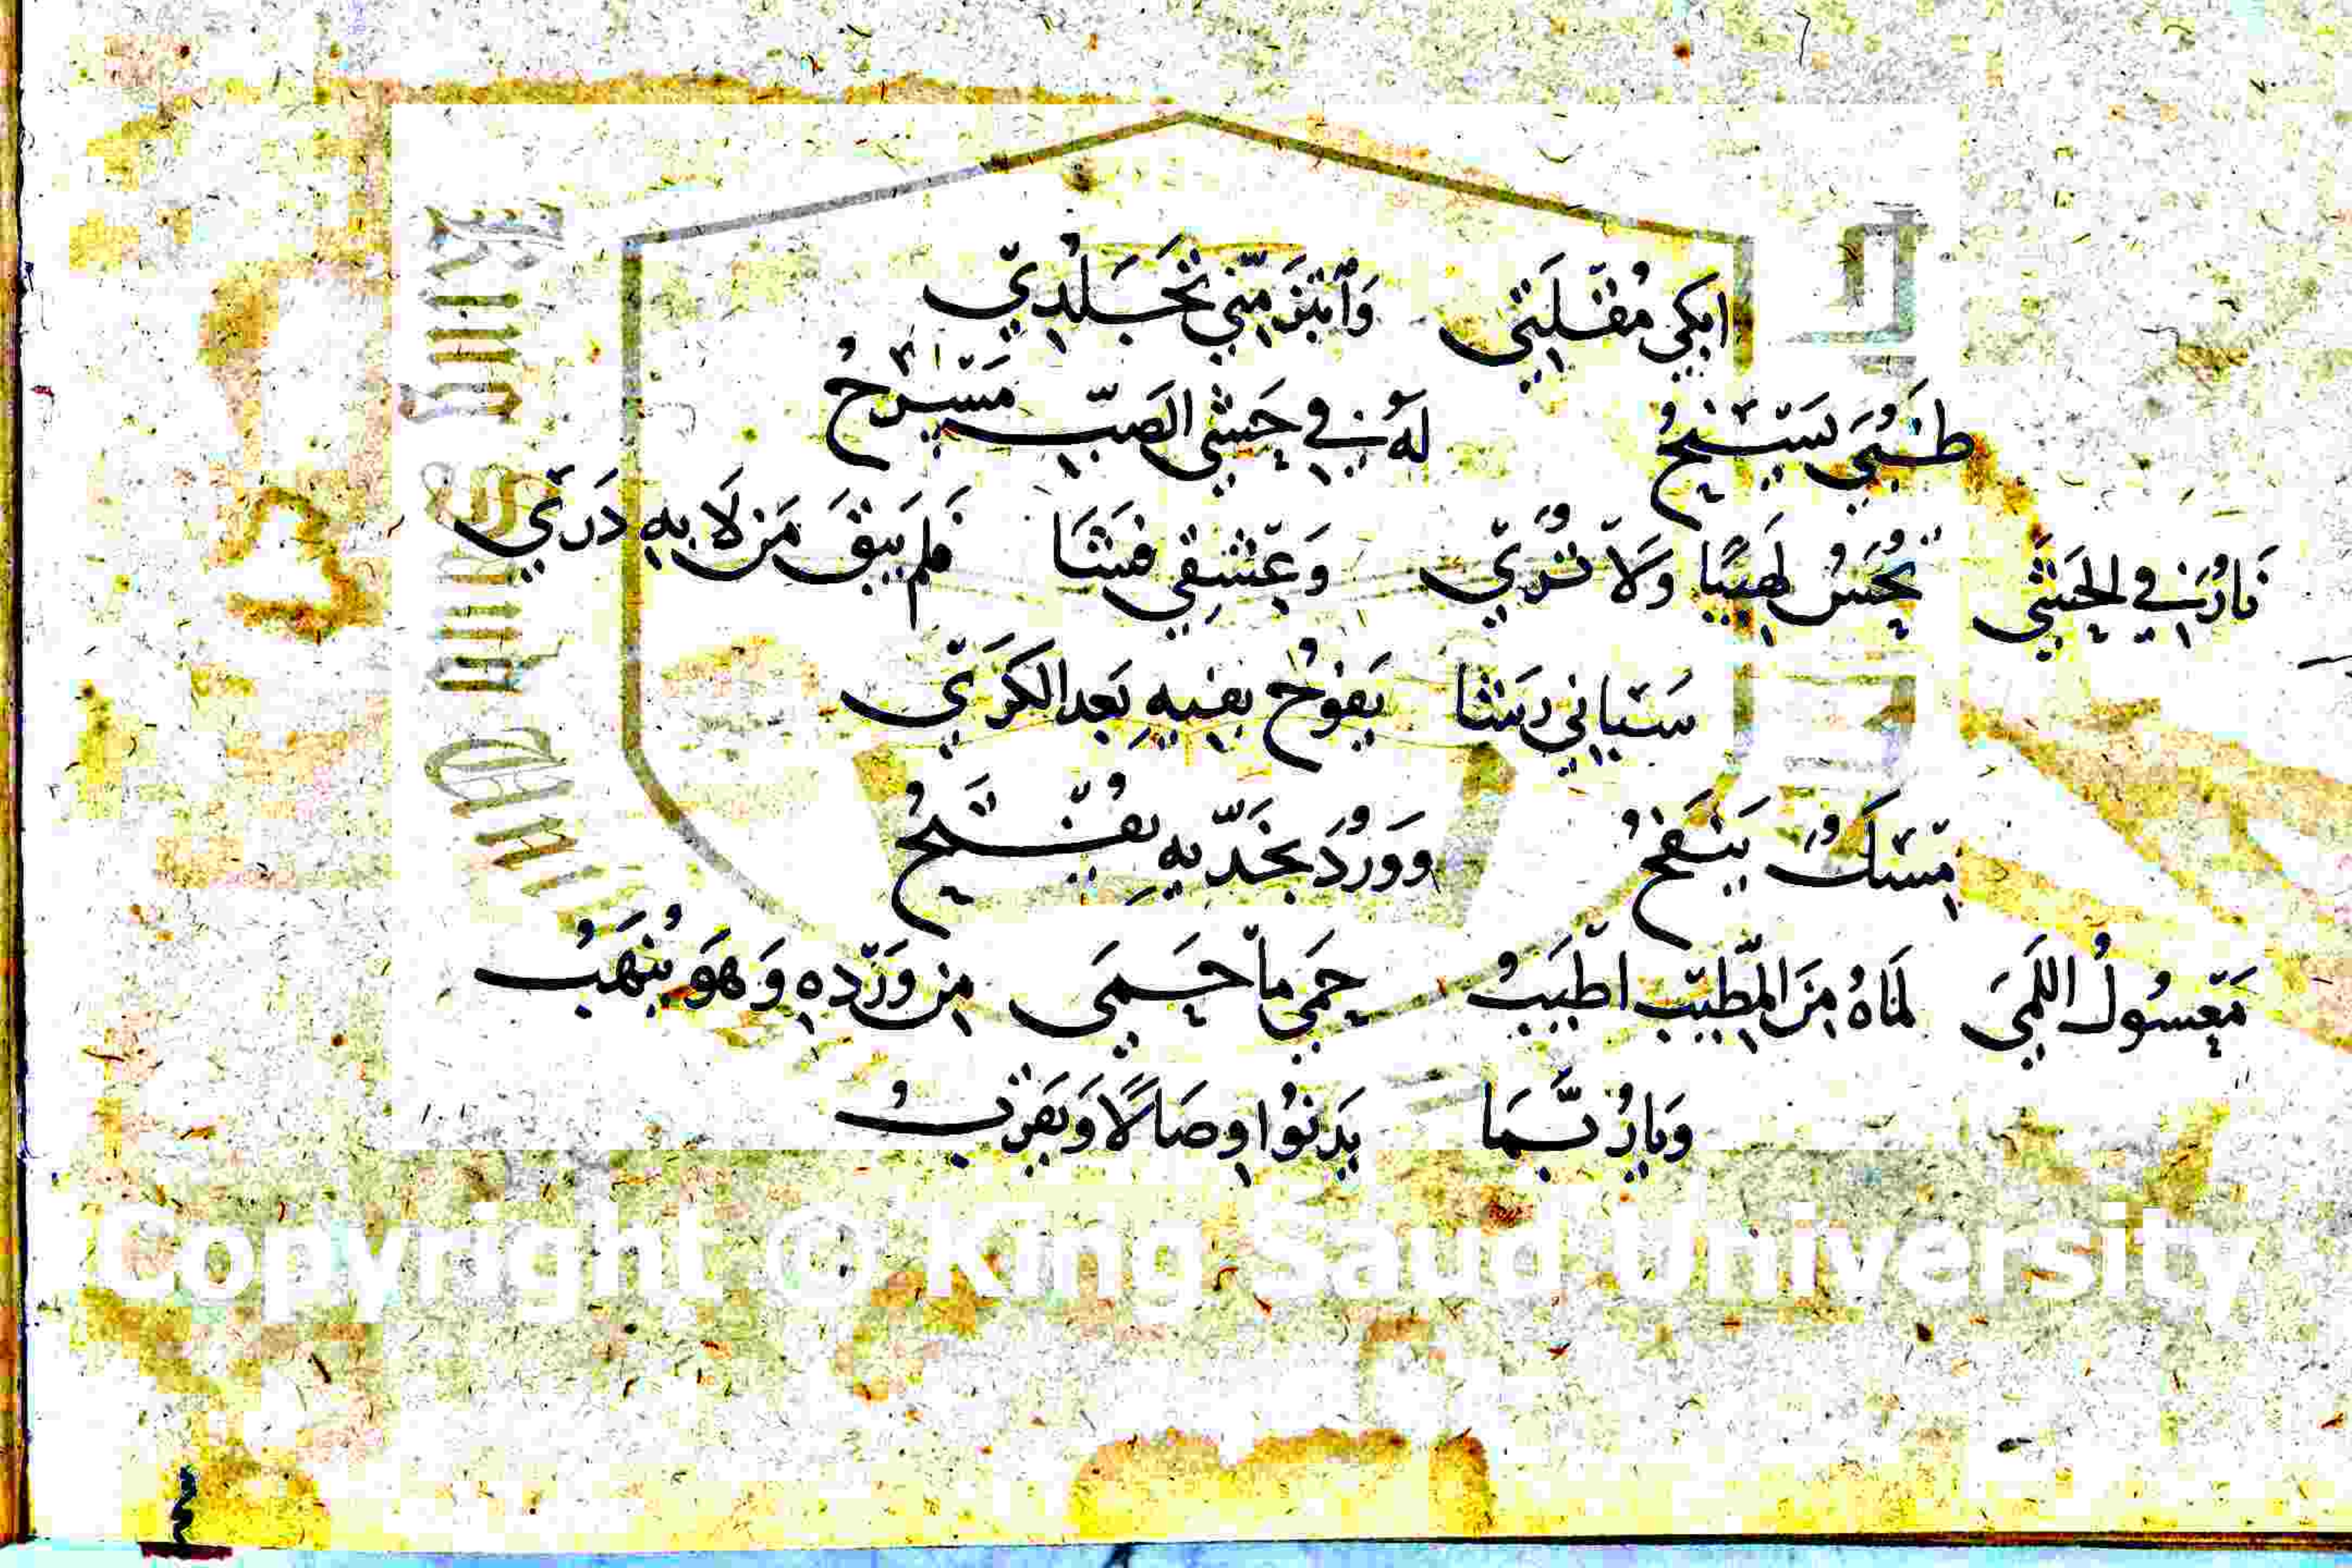 ابكي مُقْلَتِي وَابْتَزَّ مِنّي تَجَلُّدِي
ظَبْيٌ يَسْنَحُ لَهُ فِي حَشَى الصَبّ مَسْرَحُ
نَارٌ فِي الحَشَى تُحَسُّ لَهِيبًا وَلَا تُرَى وَعِشْقِي فَشَا فَلَم يَبْقَ مَنْ لَا بِهِ دَرَى
سَبَانِي رَشَا يَفُوحُ بِفِيهِ بَعد الكَرَى
مِسْكٌ يَنْفَحُ وَوَرْدٌ بِخَدَّيهِ يُفَتَّحُ
مَعْسُولُ اللَّمَى لَمَاهُ مِنَ الطِّيبِ اطْيَبُ حَمَى مَا حَمَى مِن وَرْدِهِ وَهوَ يُنْهَبُ
وَيَا رُبَّمَا يَدنُوا وِصَالًا وَيَقْرُبُ
King Saud University
Copyright © King Saud University